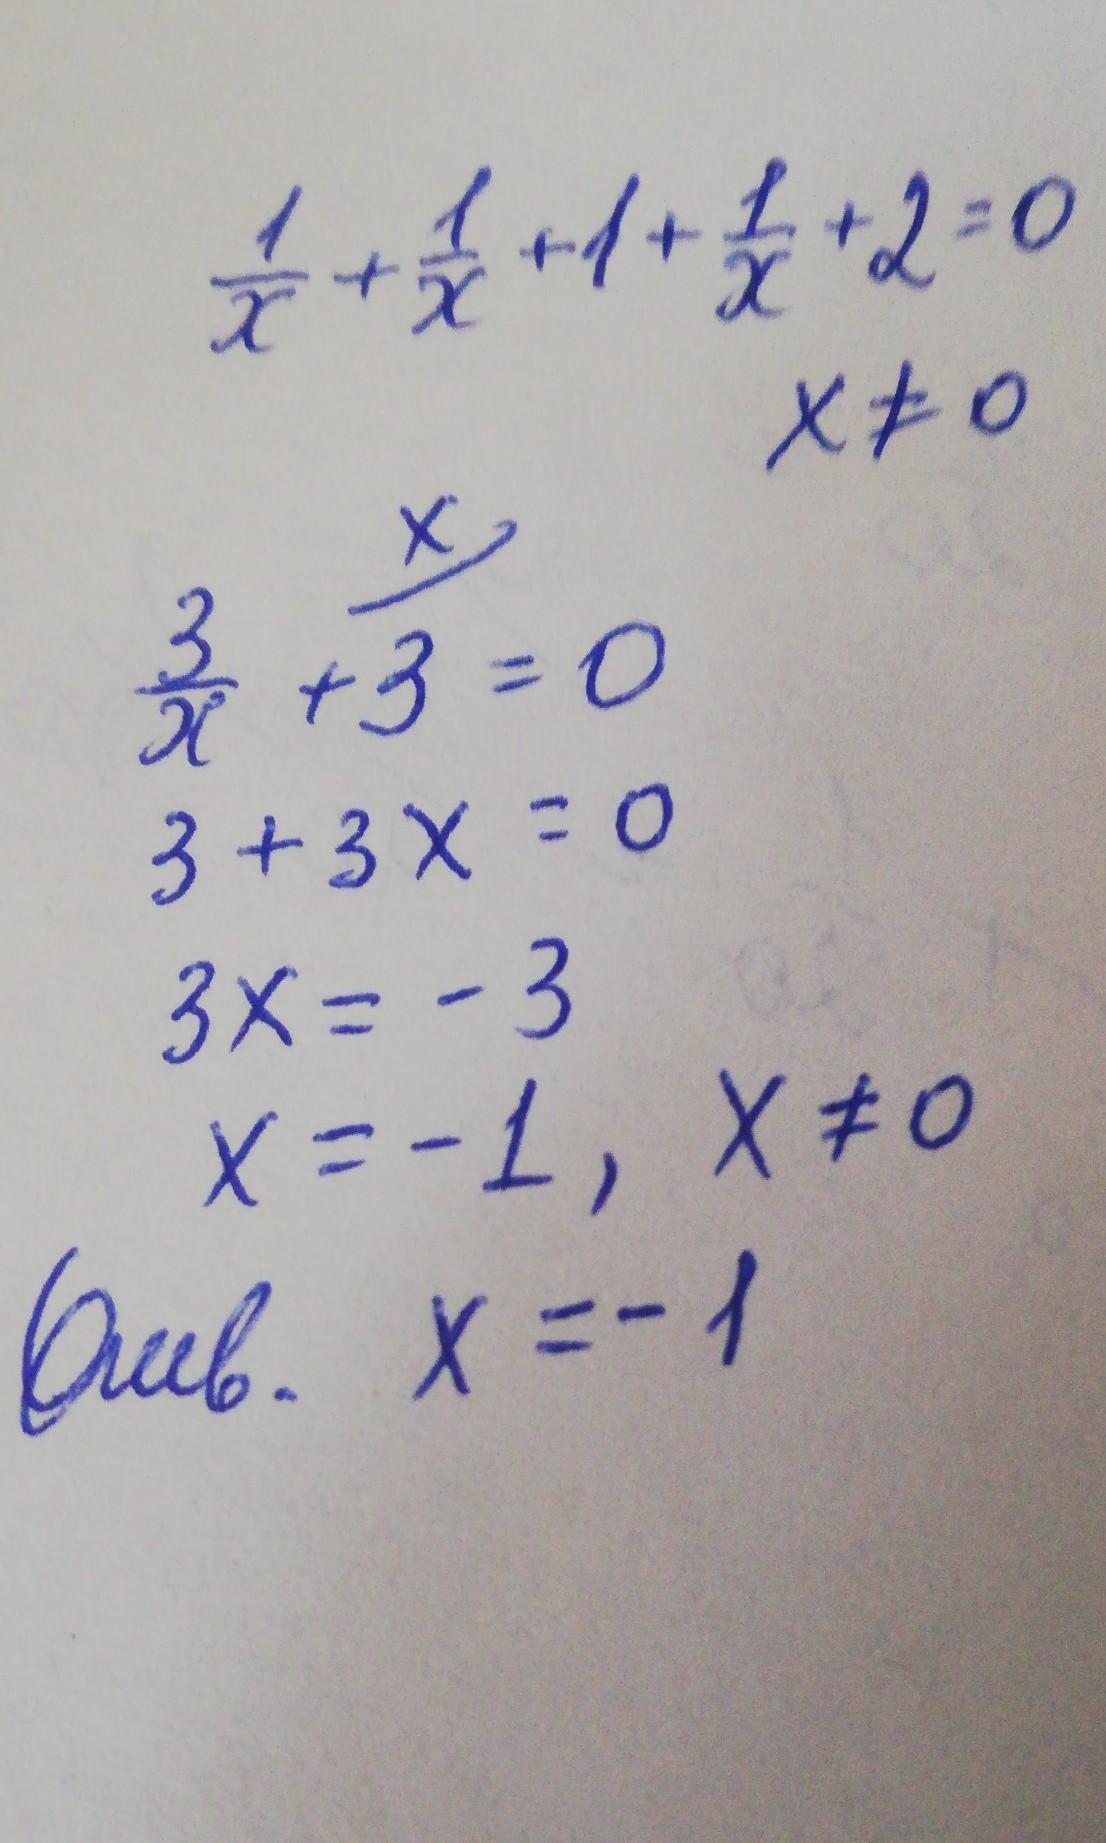 1/x + 1/x + 1 + 1/x + 2 = 0
x ≠ 0
x
3/x + 3 = 0
3 + 3x = 0
3x = - 3
x = - 1, x ≠ 0
Отв. x = - 1